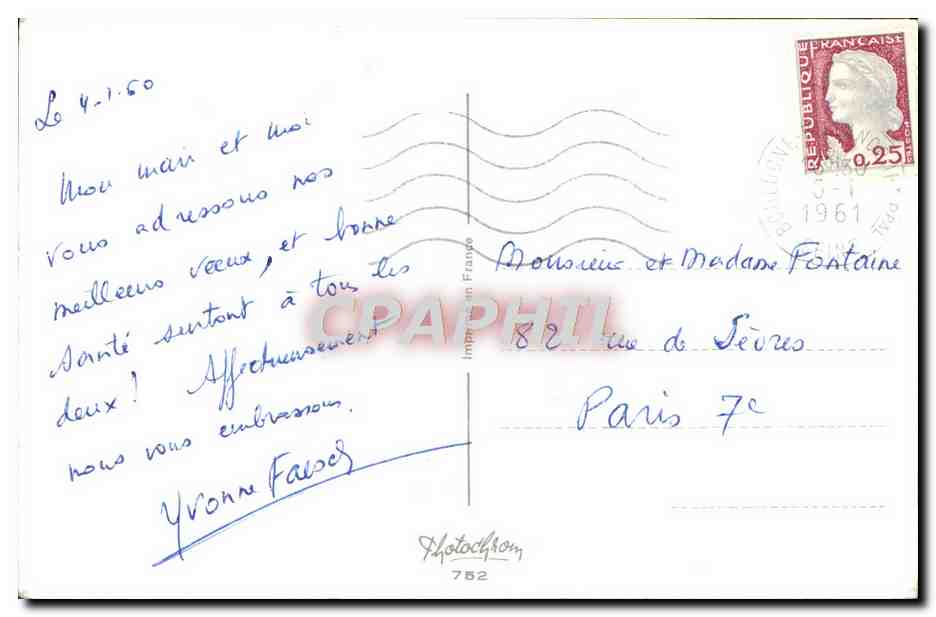 Le 4-1-60
Mon mari et moi
vous adressons nos
meilleurs vœux, et bonne
santé surtout à tous les
deux! Affectueusement
nous vous embrassons.
Yvonne
RÉPUBLIQUE FRANÇAISE
0,25
1961
Imprimé en France
Monsieur et Madame Fontaine
82 rue de Sèvres
Paris 7e
CPAPHIL
Photochrom
752